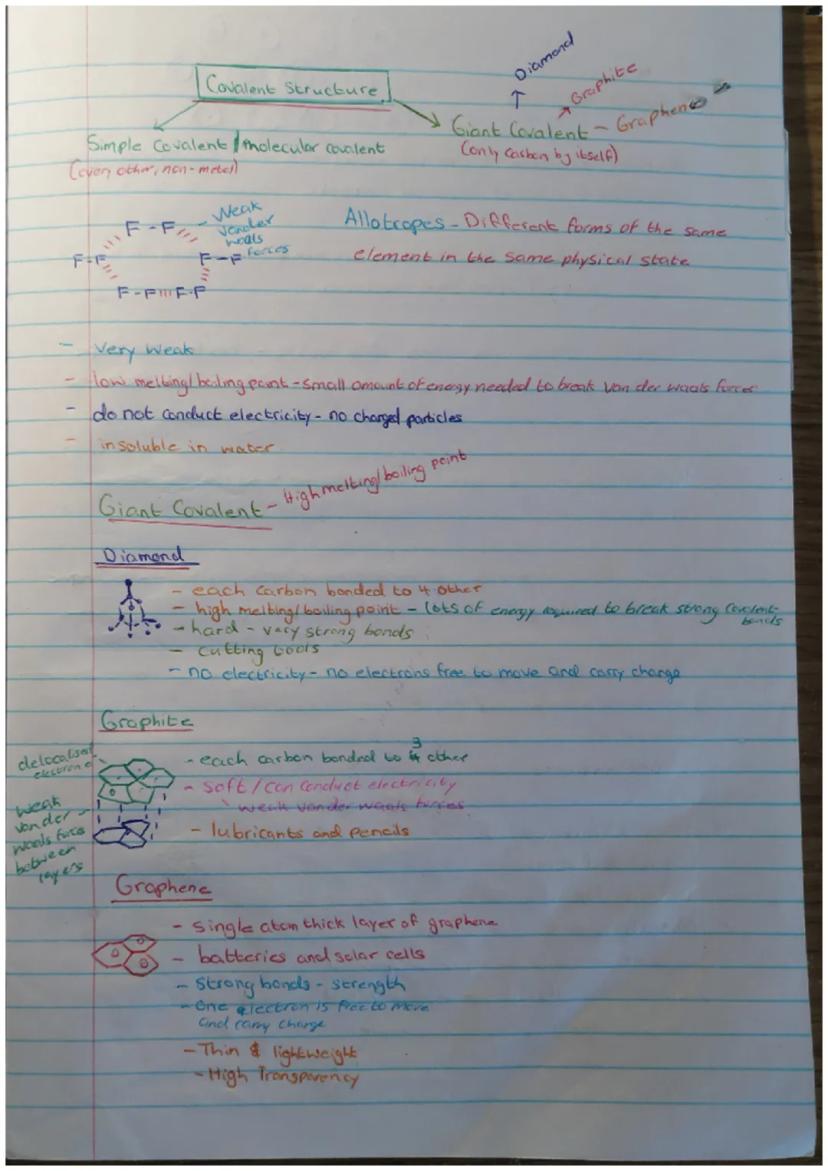 Diamond
Graphite
Covalent Structure
Giant Covalent - Graphene
(only carbon by itself)
Simple Covalent / molecular covalent
(every other, non-metal)
Weak
vander
waals
forces
F-F
F-F
F-F
F-F III F-F
Allotropes - Different forms of the same
element in the same physical state
- very weak
- low melting/boiling point - small amount of energy needed to break van der waals forces
- do not conduct electricity - no charged particles
- insoluble in water
Giant Covalent - High melting/boiling point
Diamond
- each carbon bonded to 4 other
- high melting/boiling point - lots of energy required to break strong covalent
bonds
- hard - very strong bonds
- cutting tools
- no electricity - no electrons free to move and carry charge
Graphite
delocalised
electrons
- each carbon bonded to 3 other
- soft / can conduct electricity
weak vander waals forces
- lubricants and pencils
weak
vander
waals forces
between
layers
Graphene
- single atom thick layer of graphene
- batteries and solar cells
- Strong bonds - strength
- One electron is free to move
and carry charge
- Thin & lightweight
- High Transparency